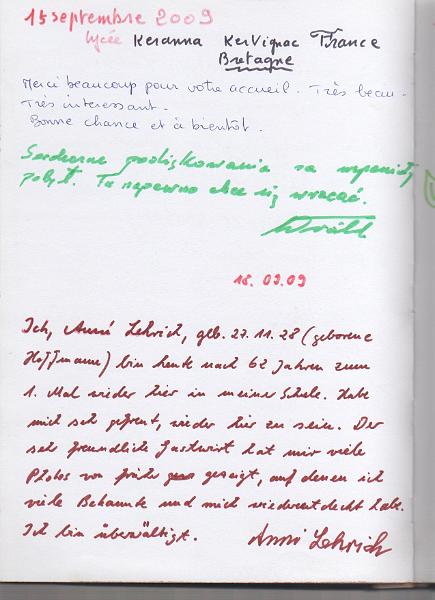 15 septembre 2009
Lycée Keranna Kervignac France
Bretagne
Merci beaucoup pour votre accueil. Très beau.
Très interessant.
Bonne chance et à bientôt.
Serdeczne podziękowania za wspaniały
pobyt. Tu napewno chce się wracać.
18.09.09
Ich, Anni Lehrich, geb. 27.11.28 (geborene
Hoffmann) bin heute nach 62 Jahren zum
1. Mal wieder hier in meiner Schule. Habe
mich sehr gefreut, wieder hier zu sein. Der
sehr freundliche Gastwirt hat mir viele
Photos von früher gezeigt, auf denen ich
viele Bekannte und mich wiederentdeckt habe.
Ich bin überwältigt. Anni Lehrich